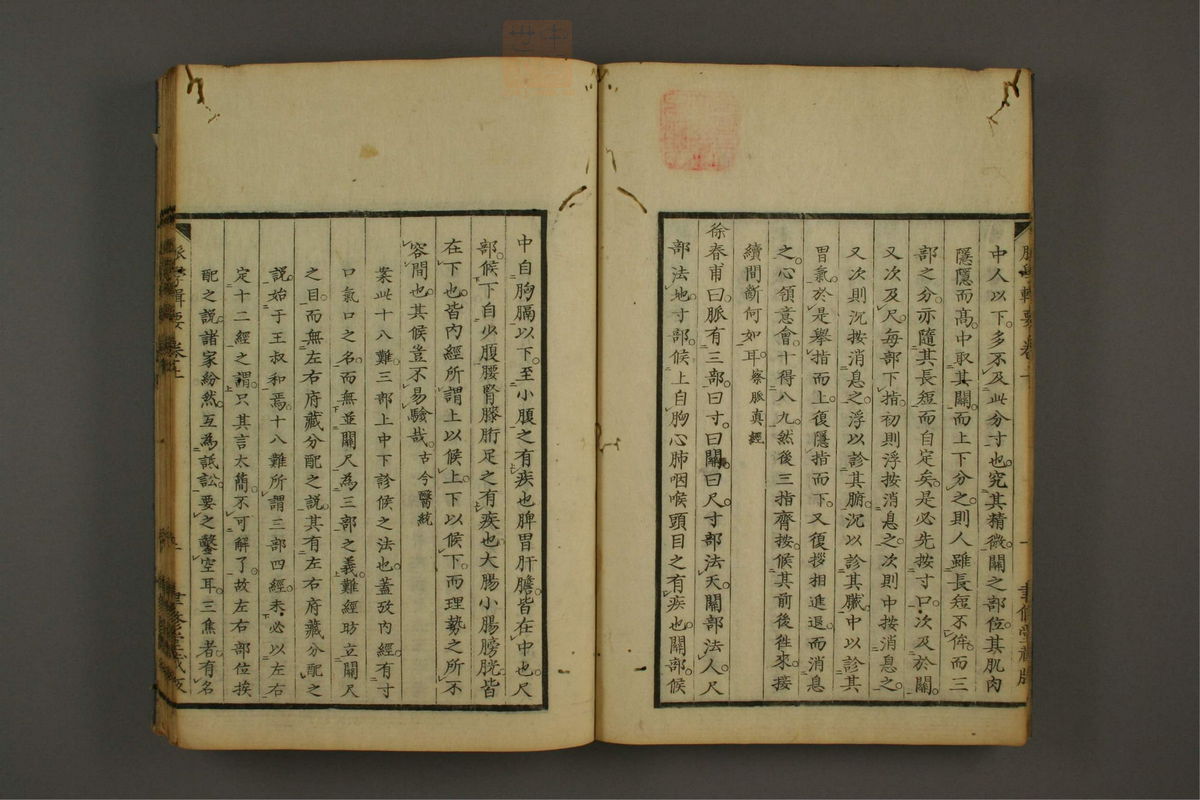 中人以下多不及此分寸也究其精微關之部位其肌肉
隱隱而高中取其關而上下分之則人雖長短不侔而三
部之分亦隨其長短而自定矣是必先按寸口次及於關
又次及尺每部下指初則浮按消息之次則中按消息之
又次則沉按消息之浮以診其腑沉以診其臟中以診其
胃氣於是舉指而上復隱指而下又復拶相進退而消息
之心領意會十得八九然後三指齊按候其前後徃來接
續間斷何如耳察脈真經
徐春甫曰脈有三部曰寸曰關曰尺寸部法天關部法人尺
部法地寸部候上自胸心肺咽喉頭目之有疾也關部候
中自胸膈以下至小腹之有疾也脾胃肝膽皆在中也尺
部候下自少腹腰腎膝胻足之有疾也大腸小腸膀胱皆
在下也皆內經所謂上以候上下以候下而理勢之所不
容間也其候豈不易驗哉古今醫統
案此十八難三部上中下診候之法也蓋攷內經有寸
口氣口之名而無並關尺為三部之義難經昉立關尺
之目而無左右府藏分配之說其有左右府藏分配之
說始于王叔和焉十八難所謂三部四經未必以左右
定十二經之謂只其言太簡不可解了故左右部位挨
配之說諸家紛然互為詆訟要之鑿空耳三焦者有名
脈學輯要 卷上
聿修堂藏版